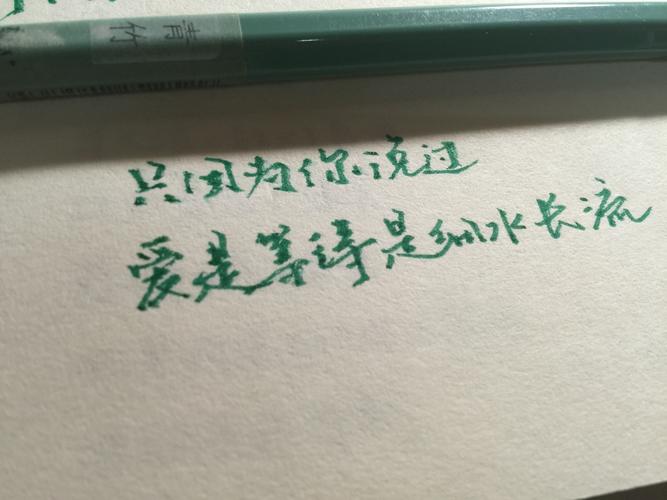 青竹
只因为你说过
爱是等待是细水长流